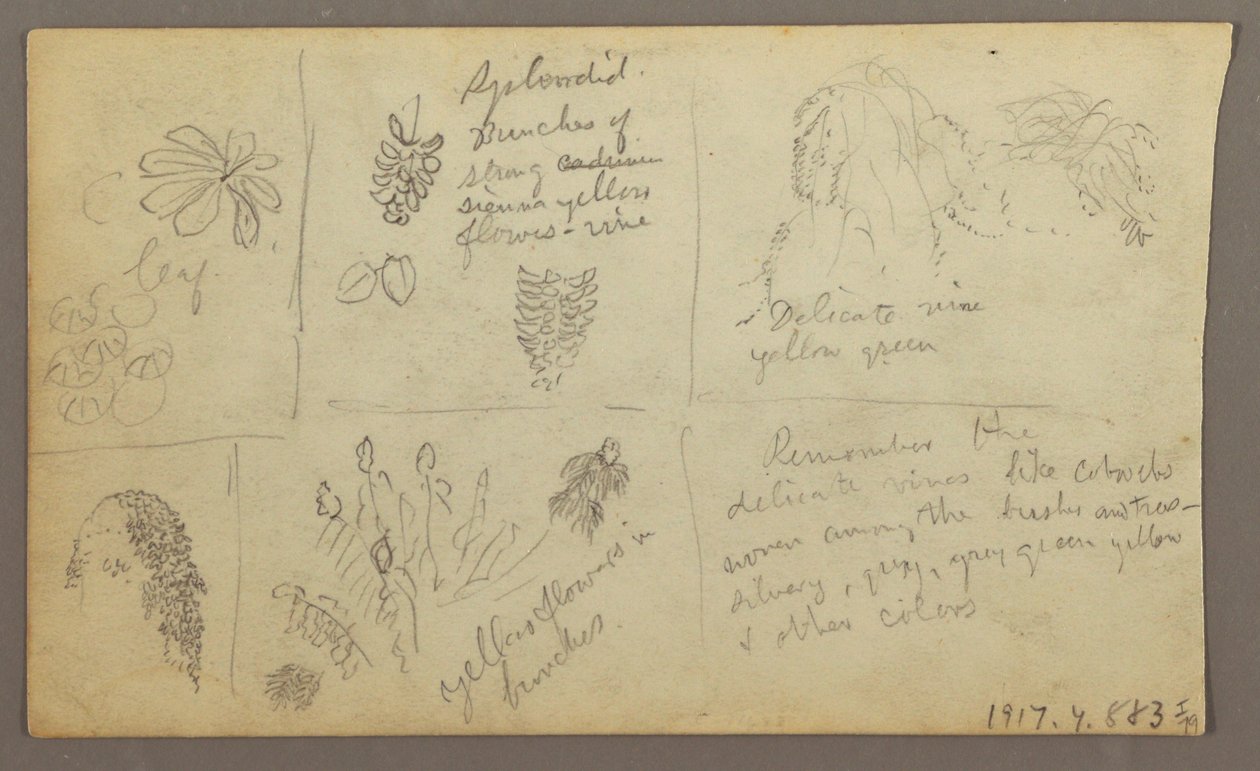 leaf.
Splendid.
Bunches of
strong cadmium
sienna yellow
flowers - vine
Delicate vine
yellow green
yellow flowers in
bunches.
Remember the
delicate vines like cobwebs
woven among the bushes and trees -
silvery, grey, grey green yellow
& other colors
1917.4.883 I/79